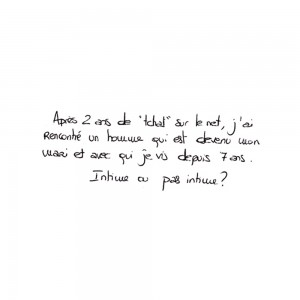 Après 2 ans de "tchat" sur le net, j'ai
rencontré un homme qui est devenu mon
mari et avec qui je vis depuis 7 ans.
Intime ou pas intime?